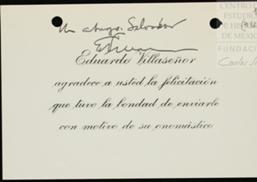 Un abrazo, Salvador
Eduardo Villaseñor
agradece a usted la felicitación
que tuvo la bondad de enviarle
con motivo de su onomástico
CENTRO
ESTUDIO
DE H
DE MÉXICO
FUNDACIÓ
Carlos S